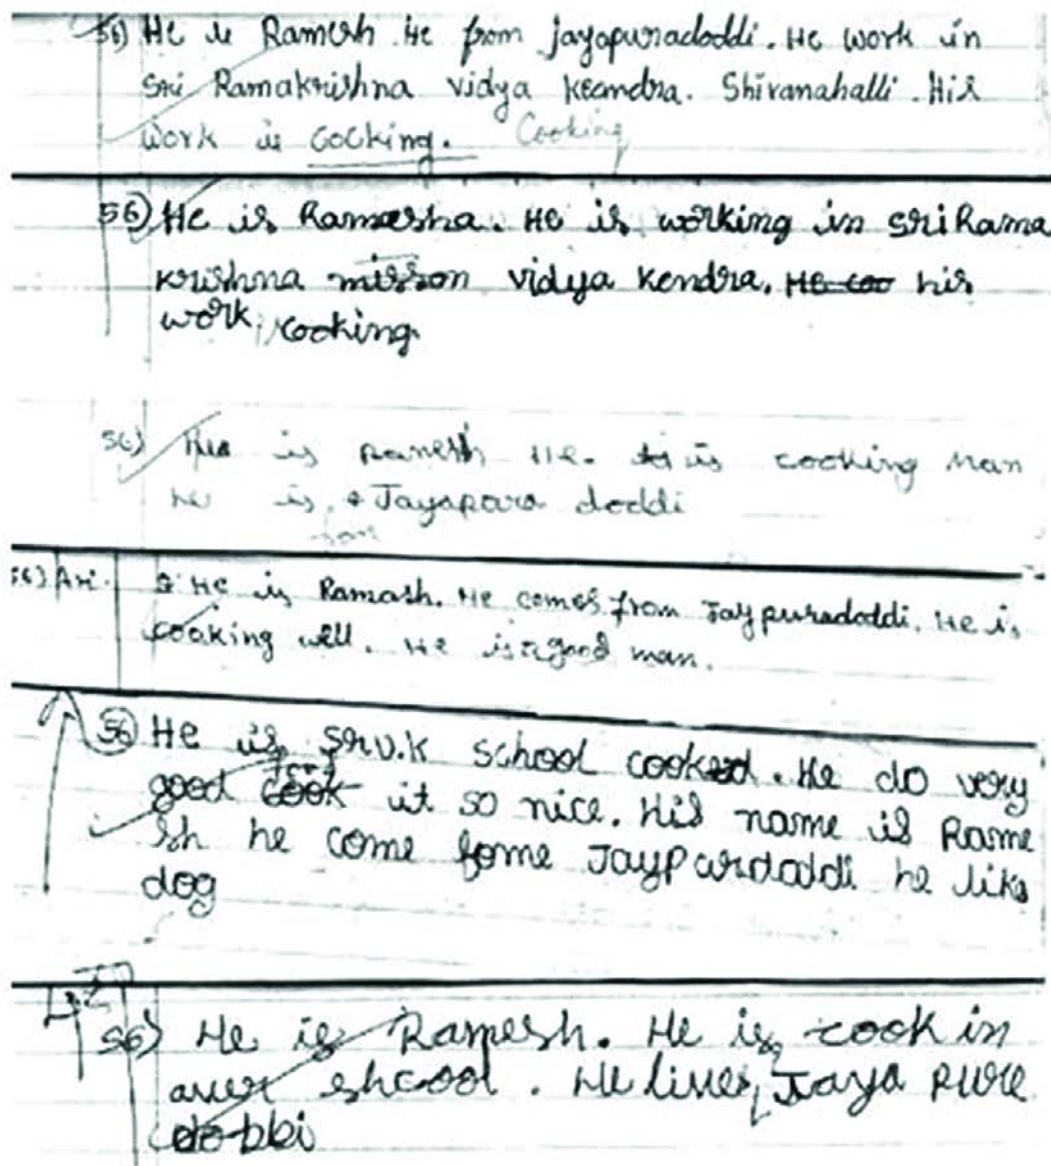 56) He is Ramesh He from jayapuradoddi. He work in
Sri Ramakrishna vidya keandra. Shivanahalli. His
work is cocking. Cooking
56) He is Ramesha. He is working in Sri Rama
krishna misson vidya kendra. He coo his
work cooking.
56) is Ramesh He. is cooking man
he is Jayapara doddi
for
56) He is Ramash. He comes from Jaypuradoddi. He is
cooking well. He is a good man.
56 He is SRV.K School cooked. He do very
good cook it so nice. His name is Rame
sh he come fome Jaypurdoddi he like
dog
56) He is Ramesh. He is cook in
aver shcool. He lives Jaya pure
do bbi